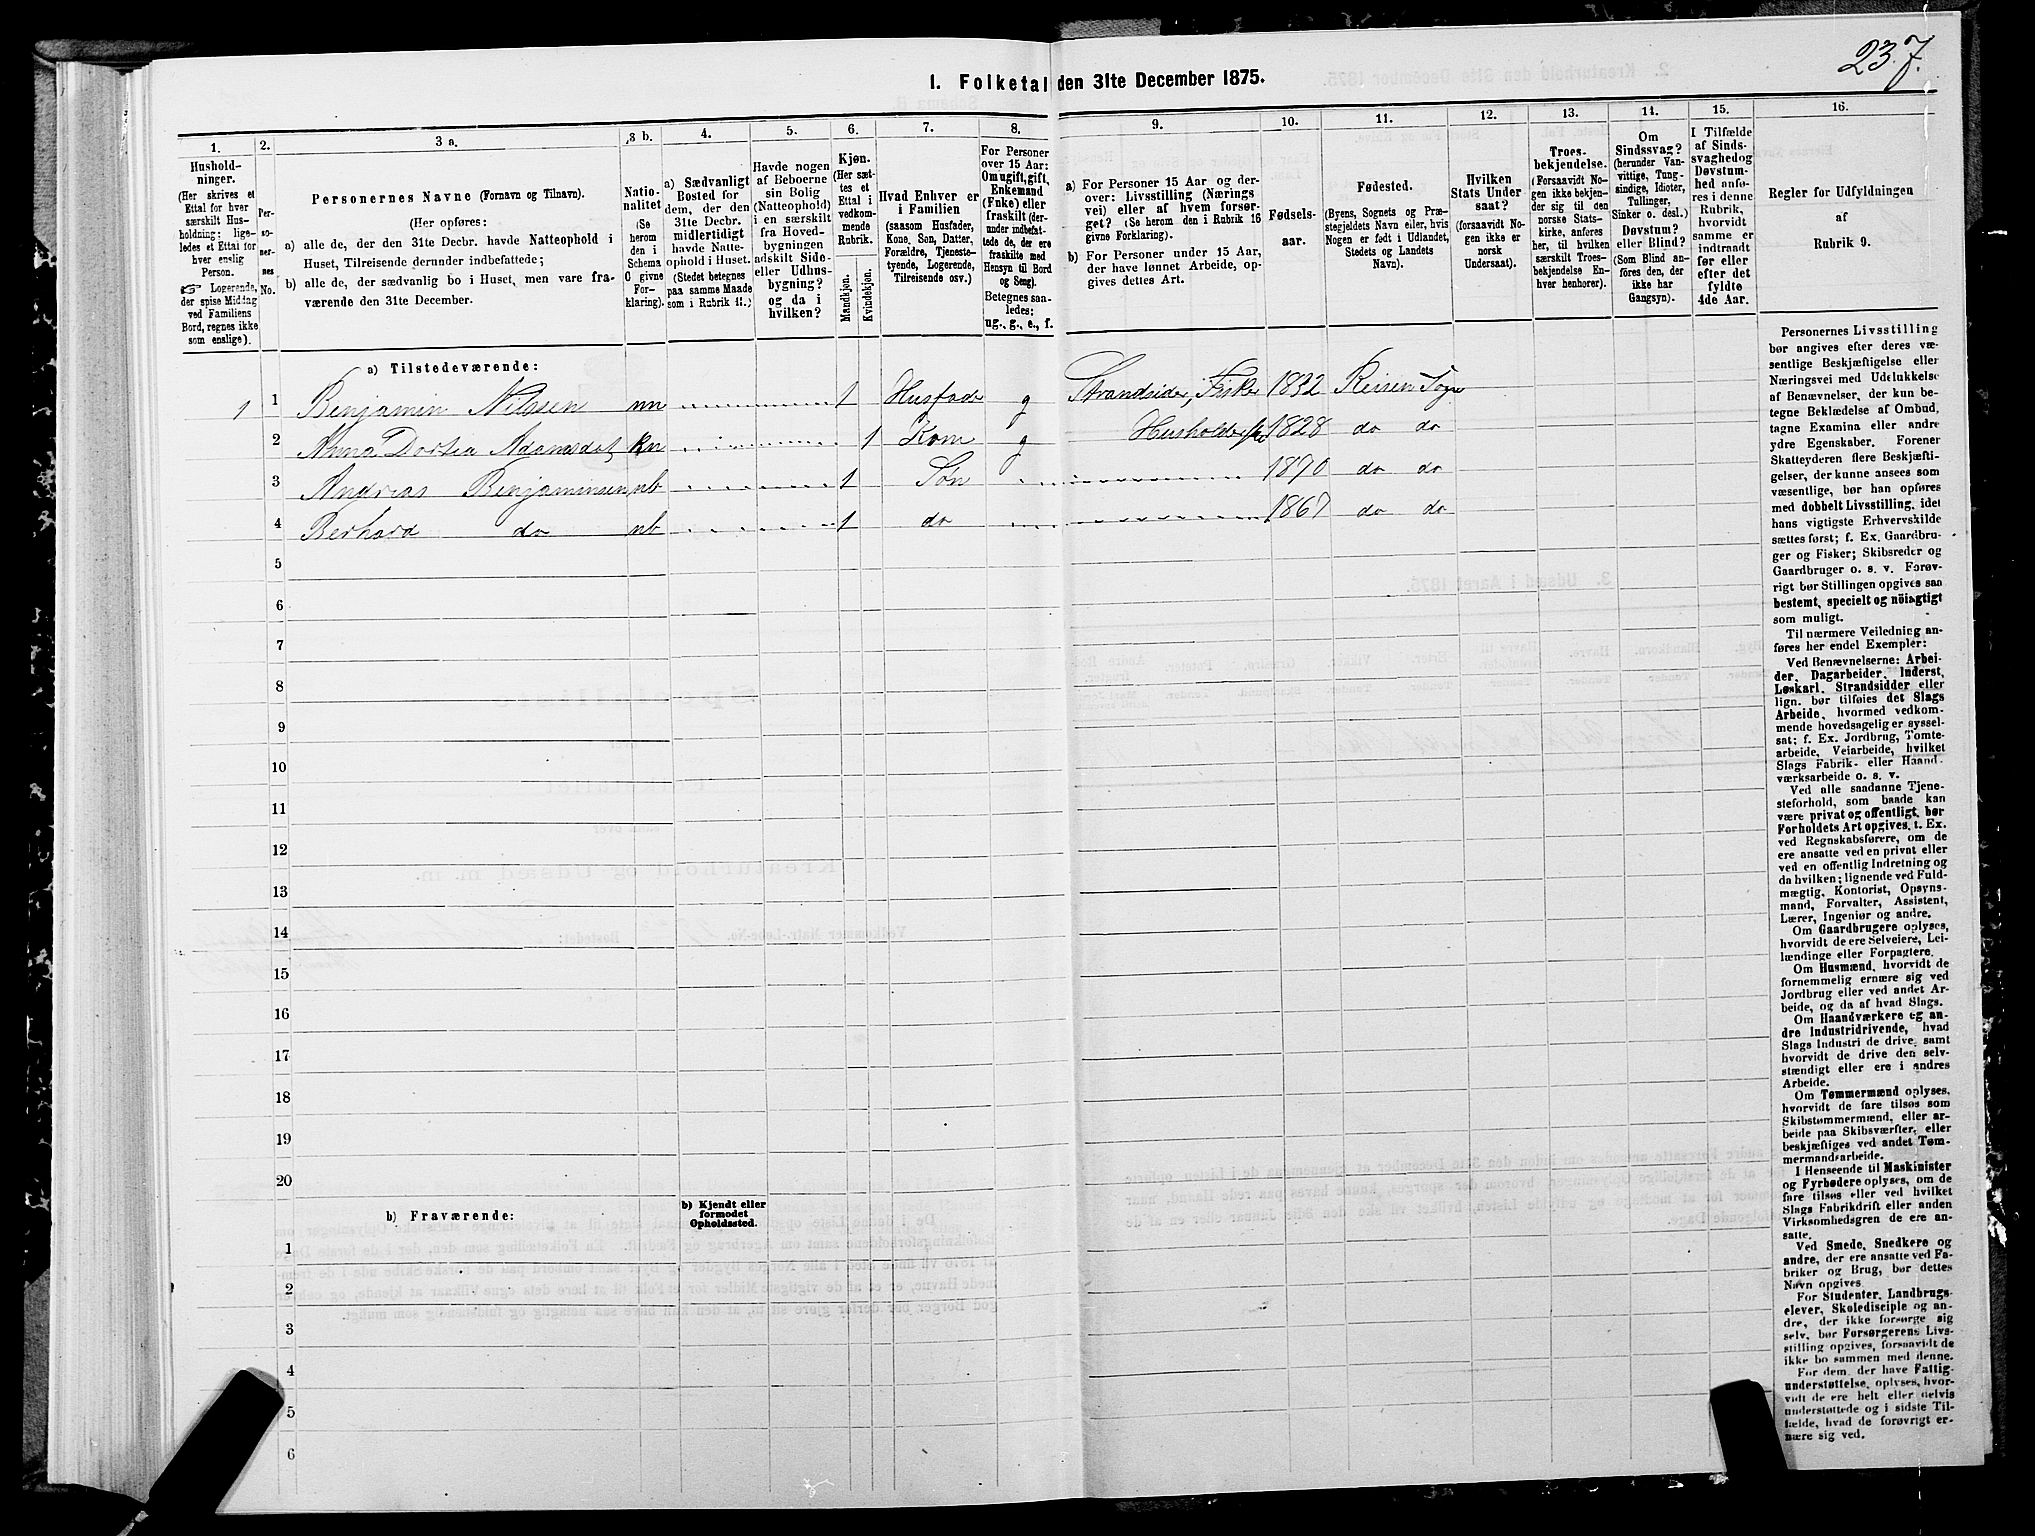 237.
1. Folketal den 31te December 1875.
1.
Hushold-
ninger.
(Her skrives et
Ettal for hver
særskilt Hus-
holdning; lige-
ledes et Ettal for
hver enslig
Person.
☞ Logerende,
der spise Middag
ved Familiens
Bord, regnes ikke
som enslige).
2.
Per-
so-
ner-
nes
No.
3 a.
Personernes Navne (Fornavn og Tilnavn).
(Her opføres:
a) alle de, der den 31te Decbr. havde Natteophold i
Huset, Tilreisende derunder indbefattede;
b) alle de, der sædvanlig bo i Huset, men vare fra-
værende den 31te December.
3 b.
Natio-
nalitet
(Se
herom
den i
Schema
C givne
For-
klaring).
4.
a) Sædvanligt
Bosted for
dem, der den
31te Decbr.
midlertidigt
havde Natte-
ophold i Huset.
(Stedet betegnes
paa samme Maade
som i Rubrik 11.)
5.
Havde nogen
af Beboerne
sin Bolig
(Natteophold)
i en særskilt
fra Hoved-
bygningen
adskilt Side-
eller Udhus-
bygning?
og da i
hvilken?
6.
Kjøn.
(Her sæt-
tes et
Ettal i
vedkom-
mende
Rubrik.
Mandkjøn.
Kvindekjøn.
7.
Hvad Enhver er
i Familien
(saasom Husfader,
Kone, Søn, Datter,
Forældre, Tjeneste-
tyende, Logerende,
Tilreisende osv.)
8.
For Personer
over 15 Aar:
Om ugift, gift,
Enkemand
(Enke) eller
fraskilt (der-
under indbefat-
tede de, der ere
fraskilte med
Hensyn til Bord
og Seng).
Betegnes saa-
ledes:
ug., g., e., f.
9.
a) For Personer 15 Aar og der-
over: Livsstilling (Nærings
vei) eller af hvem forsør-
get? (Se herom den i Rubrik 16
givne Forklaring).
b) For Personer under 15 Aar,
der have lønnet Arbeide, op-
gives dettes Art.
10.
Fødsels-
aar.
11.
Fødested.
(Byens, Sognets og Præ-
stegjeldets Navn eller, hvis
Nogen er født i Udlandet,
Stedets og Landets
Navn).
12.
Hvilken
Stats Under-
saat?
(forsaavidt No-
gen ikke er
norsk
Undersaat).
13.
Troes-
bekjendelse.
(Forsaavidt No-
gen ikke bekjen-
der sig til den
norske Stats-
kirke, anføres
her, til hvilken
særskilt Troes-
bekjendelse En-
hver henhorer).
14.
Om
Sindssvag?
(herunder Van-
vittige, Tung-
sindige, Idioter,
Tullinger,
Sinker o. desl.)
Døvstum?
eller Blind?
(Som Blind an-
føres den, der
ikke har
Gangsyn).
15.
I Tilfælde
af Sinds-
svaghed og
Døvstum-
hed anfø-
res i denne
Rubrik,
hvorvidt
samme er
indtraadt
før eller
efter det
fyldte
4de Aar.
16.
Regler for Udfyldningen
af
Rubrik 9.
a) Tilstedeværende:
1 1 Benjamin Nilssen nn 1 Husfader g Strandsider, Fisker 1832 Reisen Sogn
2 Anna Dortea Adamsdat kn 1 Kone g 1828 do do
3 Andrias Benjaminsen nb 1 Søn 1870 do do
4 Berhard do nb 1 do 1867 do do
5
6
7
8
9
10
11
12
13
14
15
16
17
18
19
20
b) Fraværende:
b) Kjendt eller
formodet
Opholdssted.
1
2
3
4
5
6
Personernes Livsstilling
bør angives efter deres væ-
sentlige Beskjæftigelse eller
Næringsvei med Udelukkelse
af Benævnelser, der kun be-
tegne Beklædelse af Ombud,
tagne Examina eller andre
ydre Egenskaber. Forener
Skatteyderen flere Beskjæfti-
gelser, der kunne ansees som
væsentlige, bør han opføres
med dobbelt Livsstilling, idet
hans vigtigste Erhvervskilde
sættes først; f. Ex. Gaardbru-
ger og Fisker; Skibsreder og
Gaardbruger o. s. v. Forøv-
rigt bør Stillingen opgives saa
bestemt, specielt og nöiagtigt
som muligt.
Til nærmere Veiledning an-
føres her endel Exempler:
Ved Benævnelserne: Arbei-
der, Dagarbeider, Inderst,
Løskarl, Strandsidder eller
lign. bør tilføies det Slags
Arbeide, hvormed vedkom-
mende hovedsagelig er syssel-
sat; f. Ex. Jordbrug, Tomte-
arbeide, Veiarbeide, hvilket
Slags Fabrik- eller Haand-
værksarbeide o. s. v.
Ved alle saadanne Tjene-
steforhold, som baade kan
være privat og offentligt, bør
Forholdets Art opgives, t. Ex.
ved Regnskabsførere, om de
ere ansatte ved en privat eller
ved en offentlig Indretning og
da hvilken; lignende ved Fuld-
mægtig, Kontorist, Opsyns-
mand, Forvalter, Assistent,
Lærer, Ingeniør og andre.
Om Gaardbrugere oplyses,
hvorvidt de ere Selveiere, Lei-
lændinge eller Forpagtere.
Om Husmænd, hvorvidt de
fornemmelig ernære sig ved
Jordbrug eller ved andet Ar-
beide, og da af hvad Slags.
Om Haandværkere og an-
dre Industridrivende, hvad
Slags Industri de drive, samt
hvorvidt de drive den selv-
stændigt eller ere i andres
Arbeide.
Om Tømmermænd oplyses,
hvorvidt de fare tilsøs som
Skibstømmermænd, eller ar-
beide paa Skibsværfter, eller
beskjæftiges ved andet Tøm-
mermandsarbeide.
I Henseende til Maskinister
og Fyrbødere oplyses, om de
fare tilsøs eller ved hvilket
Slags Fabrikdrift eller anden
Virksomhedsgren de ere an-
satte.
Ved Smede, Snedkere og
andre, der ere ansatte ved Fa-
briker og Brug, bør dettes
Navn opgives.
For Studenter, Landbrugs-
elever, Skoledisciple og an-
dre, der ikke forsørge sig
selv, bør Forsørgerens Livs-
stilling opgives, forsaavidt de
ikke bo sammen med denne.
For dem, der have Fattig-
understøttelse, oplyses, hvor-
vidt de ere helt eller delvis
understøttede og i sidste Til-
fælde, hvad de forøvrigt er-
nære sig ved.